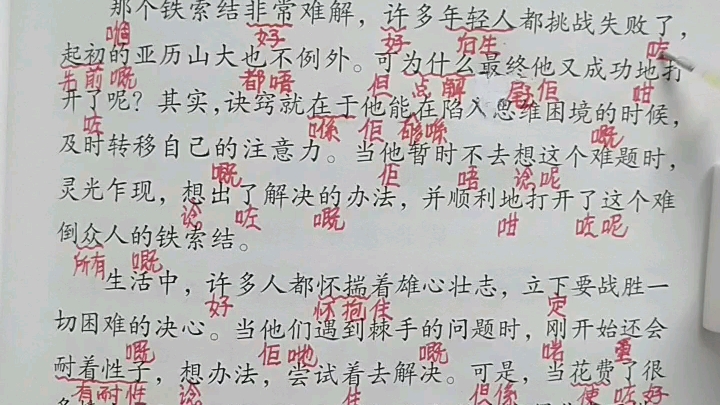 那个铁索结非常难解，许多年轻人都挑战失败了，
嗰 好 好 后生 咗
起初的亚历山大也不例外。可为什么最终他又成功地打
先前嘅 都唔 但 点解 佢 咁
开了呢？其实，诀窍就在于他能在陷入思维困境的时候，
咗 喺 佢 喺 嘅
及时转移自己的注意力。当他暂时不去想这个难题时，
嘅 佢 唔 谂呢
灵光乍现，想出了解决的办法，并顺利地打开了这个难
谂 咗 嘅 咁 咗呢
倒众人的铁索结。
所有 嘅
生活中，许多人都怀揣着雄心壮志，立下要战胜一
好 怀抱住 定
切困难的决心。当他们遇到棘手的问题时，刚开始还会
嘅 佢哋 嘅 啱 重
耐着性子，想办法，尝试着去解决。可是，当花费了很
有耐性 谂 住 但係 使咗好